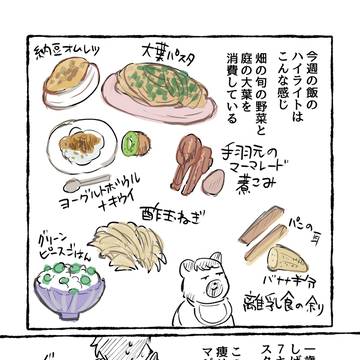 今週の飯の
ハイライトは
こんな感じ
畑の旬の野菜と
庭の大葉を
消費している
大葉パスタ
納豆オムレツ
手羽元の
マーマレード
煮こみ
ヨーグルトボウル
+キウイ
酢玉ねぎ
グリーン
ピースごはん
パンの耳
バナナ半分
離乳食の余り